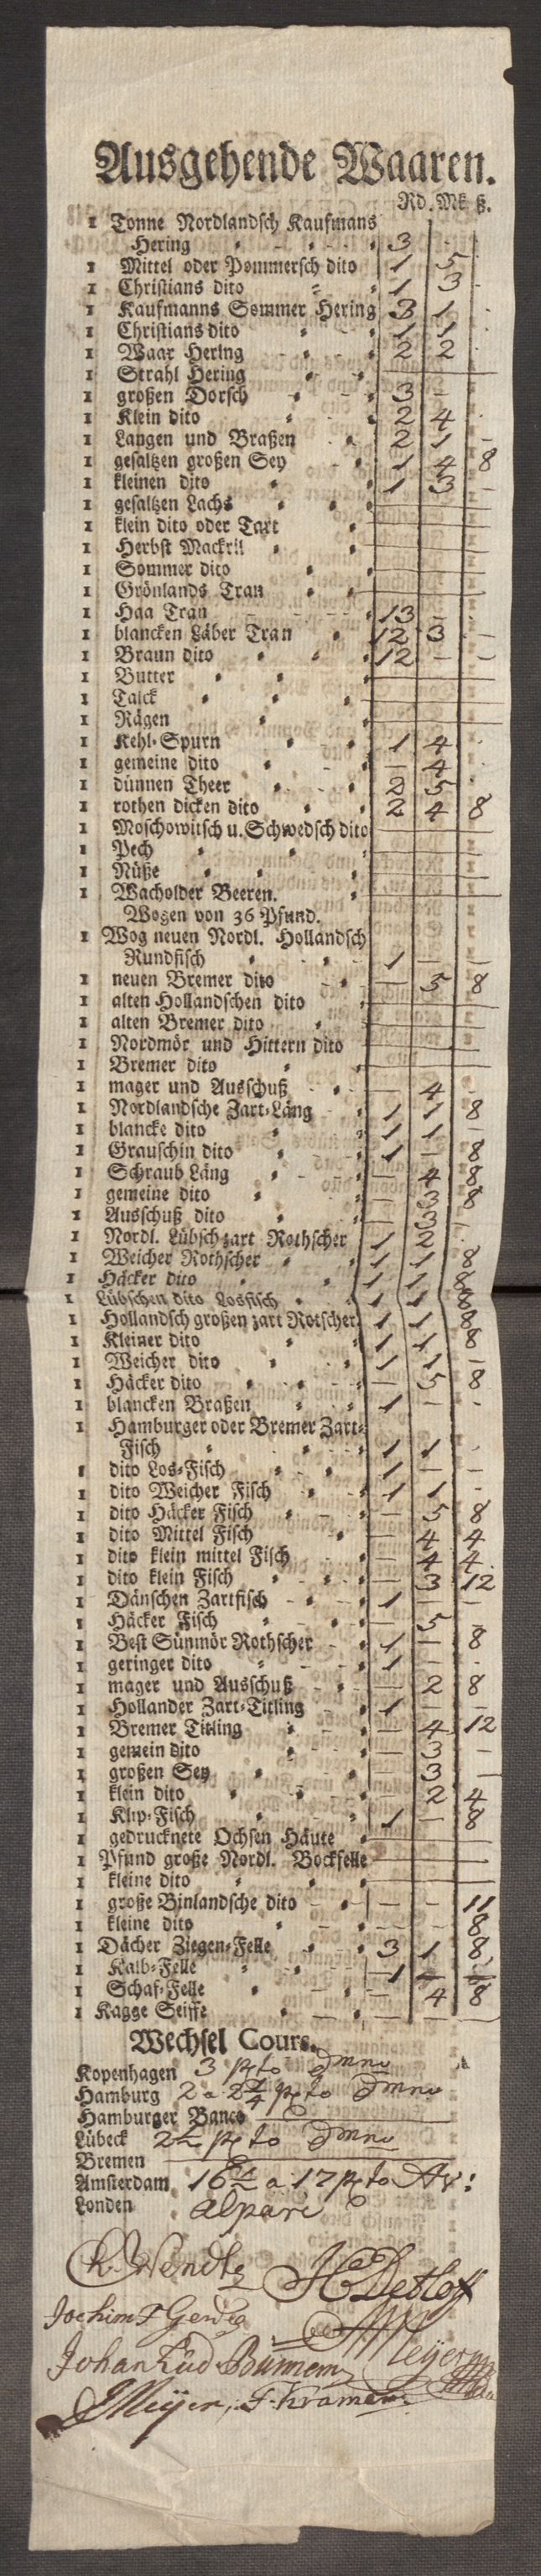 Ausgehende Waaren.
Rd. Mk ß.
1 Tonne Nordlandsch Kaufmans
Hering 3 - -
1 Mittel oder Pommersch dito 1 5 -
1 Christians dito 1 3 -
1 Kaufmanns Sommer Hering 3 1 -
1 Christians dito 1 1 -
1 Waar Hering 2 2
1 Strahl Hering
1 großen Dorsch 3 -
1 Klein dito 2 4 -
1 Langen und Braßen 2 1 -
1 gesaltzen großen Sey 1 4 8
1 kleinen dito 1 3 -
1 gesaltzen Lachs
1 klein dito oder Tart
1 Herbst Mackril
1 Sommer dito
1 Grönlands Tran
1 Haa Tran 13 - -
1 blancken Läber Tran 12 3 -
1 Braun dito 12 - -
1 Butter
1 Talck
1 Rägen
1 Kehl-Spurn 1 4 -
1 gemeine dito - 4 -
1 dünnen Theer 2 5 -
1 rothen dicken dito 2 4 8
1 Moschowitsch u. Schwedsch dito
1 Pech
1 Nüße
1 Wacholder Beeren.
Wogen von 36 Pfund.
1 Wog neuen Nordl. Hollandsch
Rundfisch 1 - -
1 neuen Bremer dito - 5 8
1 alten Hollandschen dito
1 alten Bremer dito
1 Nordmör und Hittern dito
1 Bremer dito
1 mager und Ausschuß - 4 -
1 Nordlandsche Zart-Läng 1 1 8
1 blancke dito 1 1 -
1 Grauschin dito 1 - 8
1 Schraub Läng - 4 8
1 gemeine dito - 3 8
1 Ausschuß dito - 3 -
1 Nordl. Lübsch zart Rothscher 1 2 -
1 Weicher Rothscher 1 1 8
1 Häcker dito 1 1 8
1 Lübschen dito Losfisch 1 1 8
1 Hollandsch großen zart Rotscher 1 1 8
1 Kleiner dito 1 1 8
1 Weicher dito 1 1 -
1 Häcker dito - 5 8
1 blancken Braßen 1 - -
1 Hamburger oder Bremer Zart-
Fisch 1 1 -
1 dito Los-Fisch 1 - -
1 dito Weicher Fisch 1 1 -
1 dito Häcker Fisch - 5 8
1 dito Mittel Fisch - 4 4
1 dito klein mittel Fisch - 4 4
1 dito klein Fisch - 3 12
1 Dänschen Zartfisch 1 - -
1 Häcker Fisch - 5 -
1 Best Sünmör Rothscher 1 - 8
1 geringer dito 1 - -
1 mager und Ausschuß - 2 8
1 Hollander Zart-Titling 1 - -
1 Bremer Titling - 4 12
1 gemein dito - 3 -
1 großen Sey - 3 -
1 klein dito - 2 4
1 Klip-Fisch 1 - 8
1 gedrucknete Ochsen Häute
1 Pfund große Nordl. Bockfelle
1 kleine dito
1 große Binlandsche dito - - 11
1 kleine dito - - 8
1 Dächer Ziegen-Felle 3 1 8
1 Kalb-Felle 1
1 Schaf-Felle - 4 8
1 Kagge Seiffe - - -
Wechsel Cours.
Kopenhagen 3 pto
Hamburg 2 a 2 1/4 pto
Hamburger Banco
Lübeck pto
Bremen
Amsterdam a 17 pto
Londen alpari
Wendt
HDetloff
Jochim F Gerdes
Meyer
Johan Lüd
JMeÿer, F. Kramer